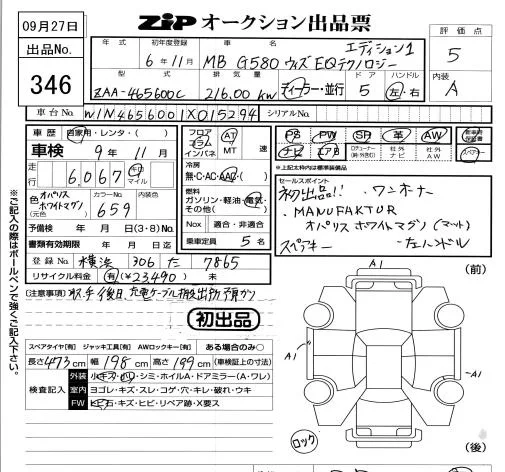 09月27日
出品No.
346
ZiP オークション出品票
評価点
5
内装
A
年式 初年度登録 車名
6年11月 MB G580 ウィズ EQテクノロジー エディション1
型式 排気量 ドア ハンドル
ZAA-465600C 216.00 kw ディーラー・並行 5 左・右
車台No. W1N4656001X015294 シリアルNo.
車歴 自家用・レンタ・( )
車検 9年11月
走行 6,067 キロ マイル
色 オパリスホワイトマグノ (元色) カラーNo. 659 内装色
予備検 年 月 日(3・8) No.
書類有効期限 年 月 日迄
登録No. 横浜 306 た 7865
リサイクル料金 有(¥23,490) 未
フロア コラム インパネ AT MT 速
冷房
無・C・AC・AAC・( )
燃料
ガソリン・軽油・電気・その他( )
Nox 適合・非適合
乗車定員 5名
PS PW SR 革 AW
ナビ エアB 社外ナビ 社外AW
※上記太枠内は純正装備品
セールスポイント
初出品!! ・ワンオーナー
・MANUFAKTUR
オパリスホワイトマグノ(マット)
スペアキー ・左ハンドル
注意事項
初出品
スペアタイヤ[有] ジャッキ工具[有] AWロックキー[有] ある場合のみ○
長さ473cm 幅198cm 高さ199cm (車検証上の寸法)
検査記入
外装 小キズ・凹・シミ・ホイルA・ドアミラー(A・ワレ)
室内 ヨゴレ・キズ・スレ・コゲ・穴・キレ・破れ・ウキ
FW ヒ石・キズ・ヒビ・リペア跡・X要ス
(前)
A1
A1
A1
A1
ロック
(後)
※ご記入の際はボールペンで強くご記入下さい。